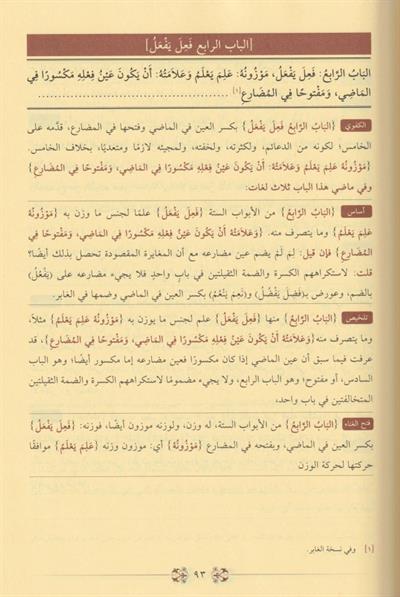 [الباب الرابع فَعِلَ يَفْعَلُ]
البَابُ الرَّابِعُ: فَعِلَ يَفْعَلُ، مَوْزُونُهُ: عَلِمَ يَعْلَمُ وَعَلَامَتُهُ: أَنْ يَكُونَ عَيْنُ فِعْلِهِ مَكْسُورًا فِي
المَاضِي، وَمَفْتُوحًا فِي المُضَارِعِ[١]
الكفوي {البَابُ الرَّابِعُ فَعِلَ يَفْعَلُ} بكسر العين في الماضي وفتحها في المضارع، قدَّمه على
الخامس؛ لكونه من الدعائم، ولكثرته، ولخفته، ولمجيئه لازمًا ومتعديًا، بخلاف الخامس.
{مَوْزُونُهُ عَلِمَ يَعْلَمُ وَعَلَامَتُهُ: أَنْ يَكُونَ عَيْنُ فِعْلِهِ مَكْسُورًا فِي المَاضِي، وَمَفْتُوحًا فِي المُضَارِعِ}
وفي ماضي هذا الباب ثلاث لغات:
أساس {البَابُ الرَّابِعُ} من الأبواب الستة {فَعِلَ يَفْعَلُ} علمًا لجنس ما وزن به {مَوْزُونُهُ
عَلِمَ يَعْلَمُ} وما يتصرف منه. {وَعَلَامَتُهُ: أَنْ يَكُونَ عَيْنُ فِعْلِهِ مَكْسُورًا فِي المَاضِي، وَمَفْتُوحًا فِي
المُضَارِعِ} فإن قيل: لِمَ لَمْ يضم عين مضارعه مع أن المغايرة المقصودة تحصل بذلك أيضًا؟
قلت: لاستكراههم الكسرة والضمة الثقيلتين في بابٍ واحدٍ فلا يجيء مضارعه على (يَفْعُلُ)
بالضم، وعورض بـ(فَضِلَ يَفْضُلُ) و(نَعِمَ يَنْعُمُ) بكسر العين في الماضي وضمها في الغابر.
تلخيص {البَابُ الرَّابِعُ} منها {فَعِلَ يَفْعَلُ} علم لجنس ما يوزن به {مَوْزُونُهُ عَلِمَ يَعْلَمُ} مثلًا،
وما يتصرف منه {وَعَلَامَتُهُ أَنْ يَكُونَ عَيْنُ فِعْلِهِ مَكْسُورًا فِي المَاضِي، وَمَفْتُوحًا فِي المُضَارِعِ}، قد
عرفت فيما سبق أن عين الماضي إذا كان مكسورًا فعين مضارعه إما مكسور أيضًا؛ وهو الباب
السادس، أو مفتوح؛ وهو الباب الرابع، ولا يجيء مضمومًا لاستكراههم الكسرة والضمة الثقيلتين
المتخالفتين في باب واحد،
فتح الفناء {البَابُ الرَّابِعُ} من الأبواب الستة، له وزن، ولوزنه موزون أيضًا، فوزنه: {فَعِلَ يَفْعَلُ}
بكسر العين في الماضي، وبفتحه في المضارع {مَوْزُونُهُ} أي: موزون وزنه {عَلِمَ يَعْلَمُ} موافقًا
حركتها لحركة الوزن
[١] وفي نسخة الغابر.
٩٣